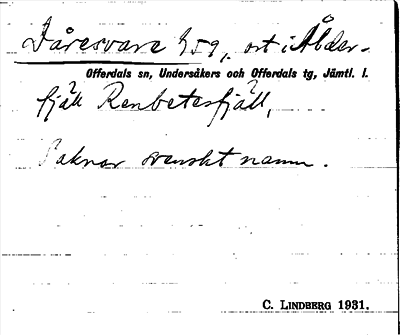 Dåresvare 859, ort i Ålder-
Offerdals sn, Undersåkers och Offerdals tg, Jämtl. l.
fjäll Renbetesfjäll,
Saknar svenskt namn.
C. LINDBERG 1931.